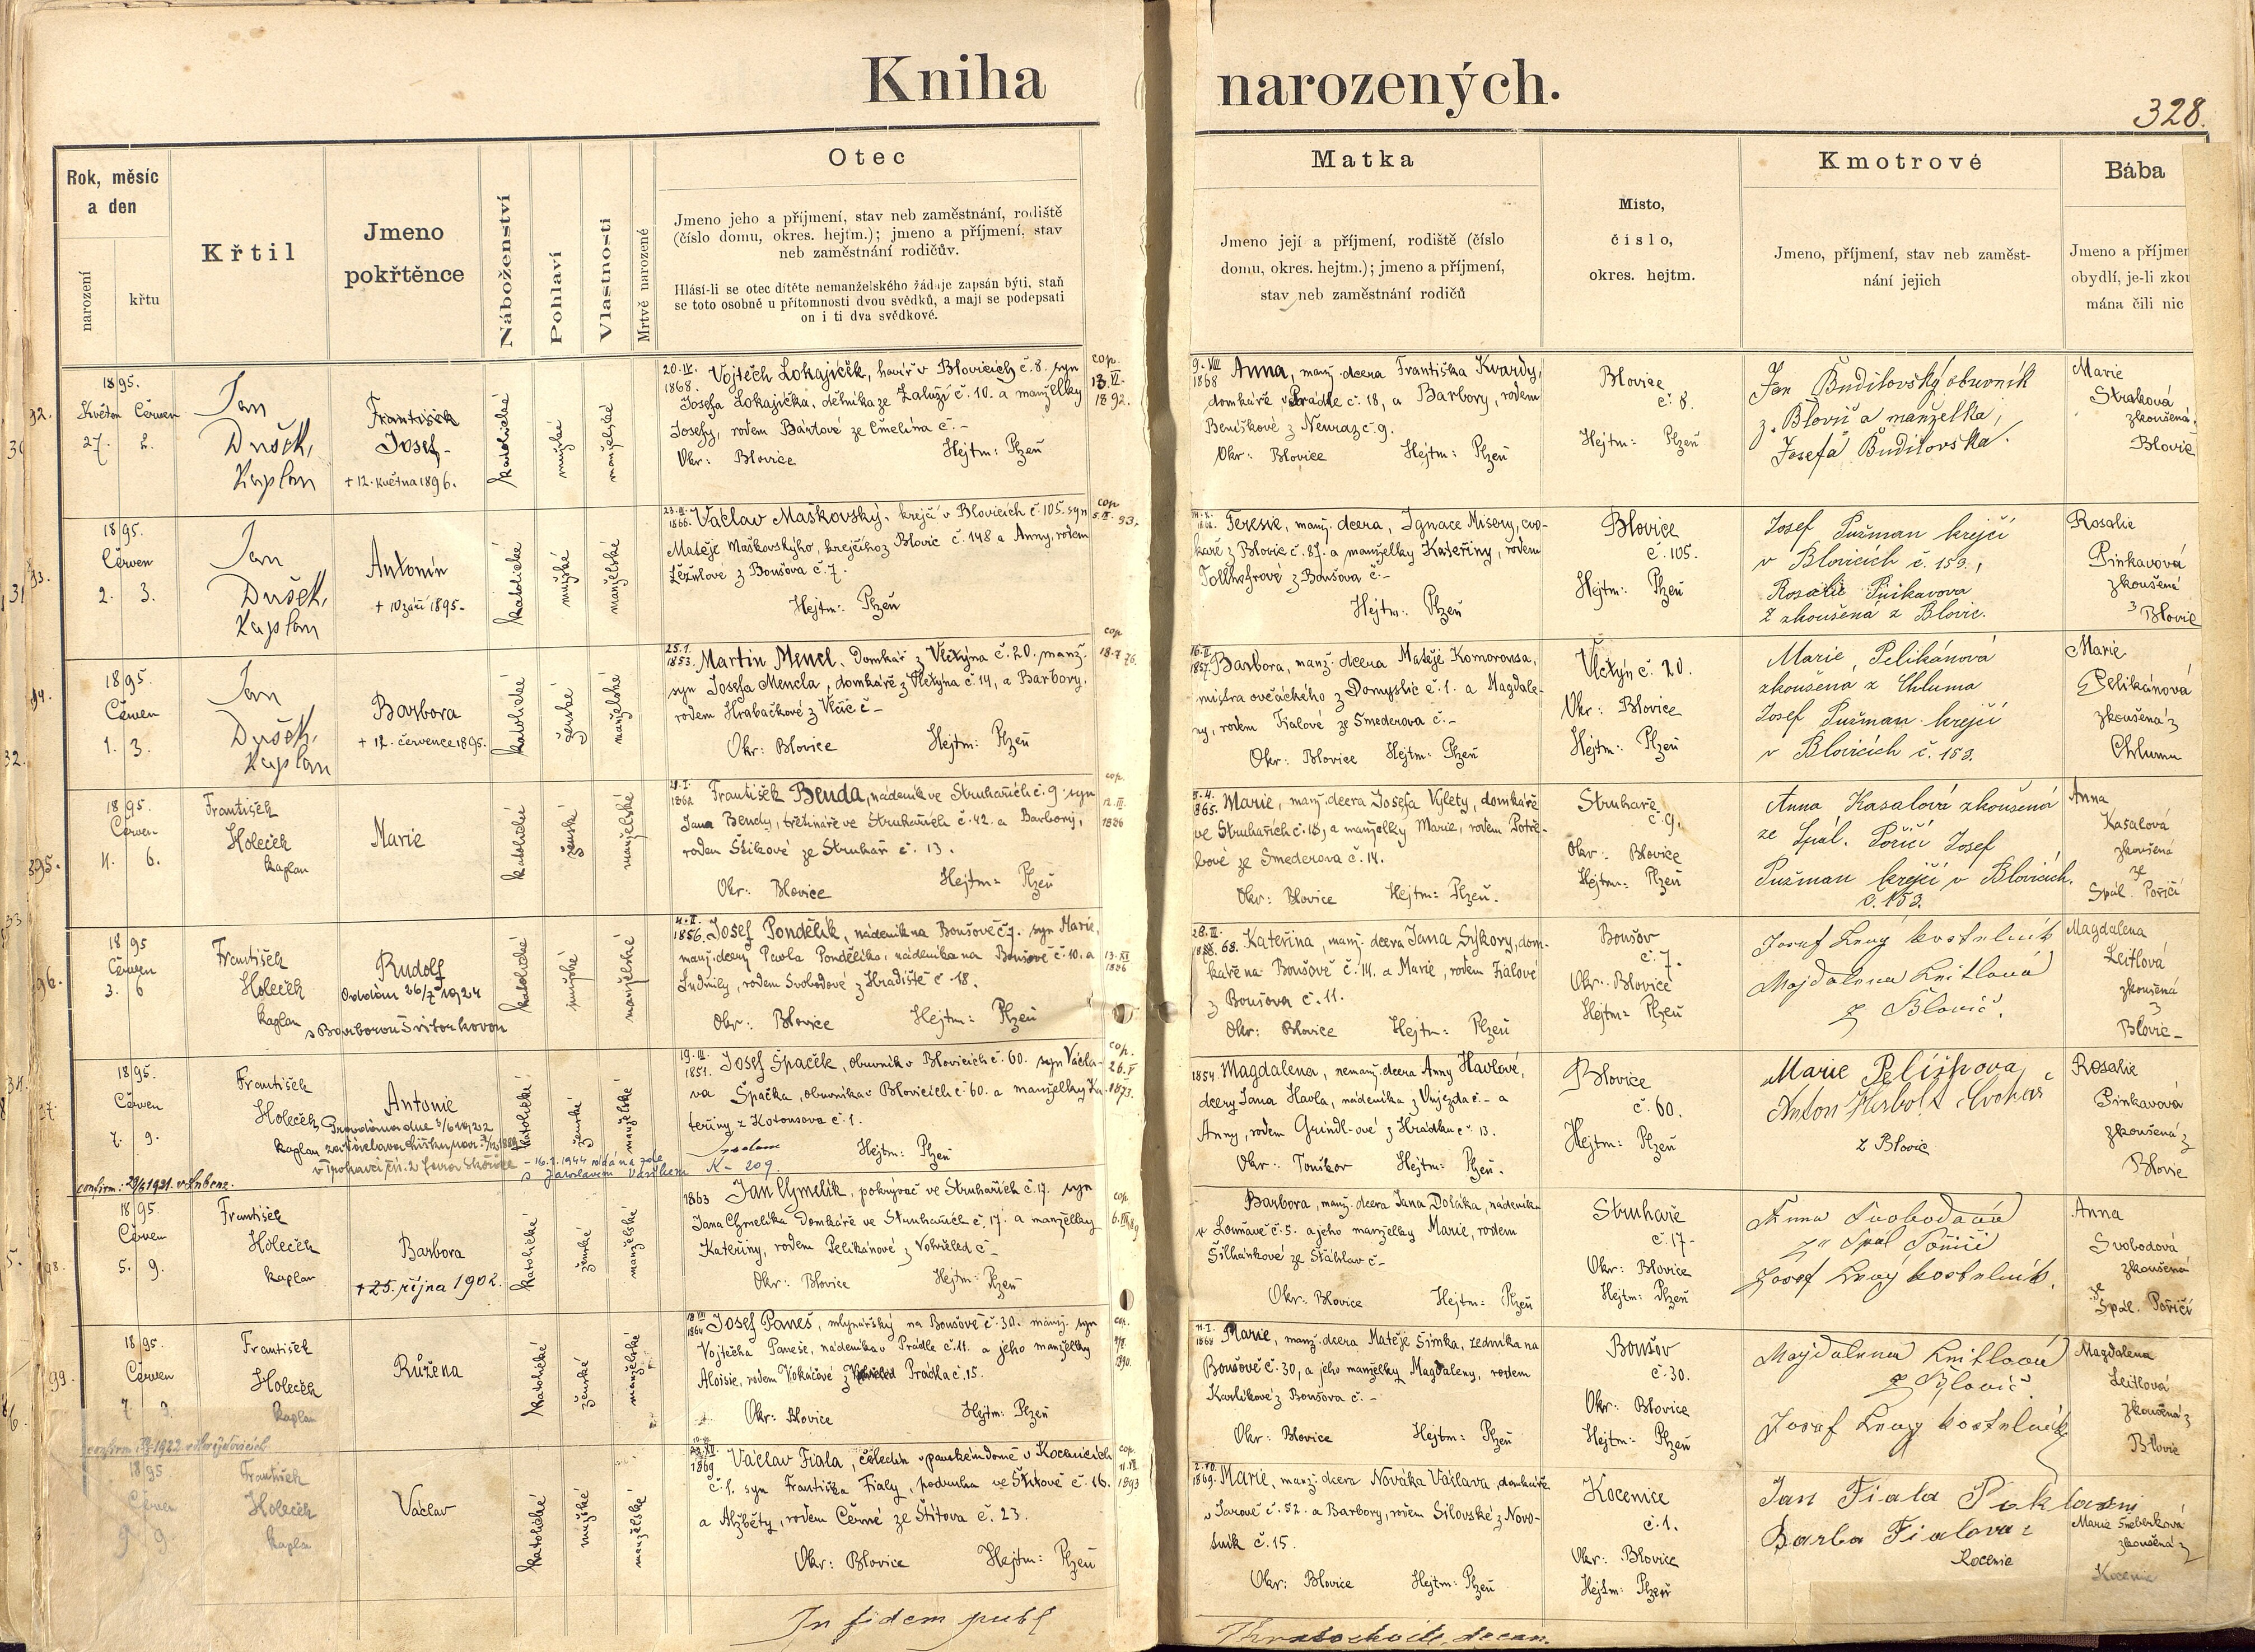 Kniha narozených.
328.
Rok, měsíc
a den
narození
křtu
Křtil
Jmeno
pokřtěnce
Náboženství
Pohlaví
Vlastnosti
Mrtvě narozené
Otec
Jmeno jeho a příjmení, stav neb zaměstnání, rodiště
(číslo domu, okres. hejtm.); jmeno a příjmení, stav
neb zaměstnání rodičův.
Hlásí-li se otec dítěte nemanželského žádaje zapsán býti, staň
se toto osobně u přítomnosti dvou svědků, a mají se podepsati
on i ti dva svědkové.
Matka
Jmeno její a příjmení, rodiště (číslo
domu, okres. hejtm.); jmeno a příjmení,
stav neb zaměstnání rodičů
Místo,
číslo,
okres. hejtm.
Kmotrové
Jmeno, příjmení, stav neb zaměst-
nání jejich
Bába
Jmeno a příjmen
obydlí, je-li zkou
mána čili nic
1895.
Květen Červen
27. 2.
Jan
Dušek,
Kaplan
František
Josef-
+ 12. května 1896.
katolické
mužské
manželské
20. IV.
1868.
Vojtěch Lokajíček, havíř v Blovicích č. 8. syn
Josefa Lokajíčka, dělníka ze Zaluží č. 10. a manželky
Josefy, rodem Bártove ze Čmelína č. -
Okr: Blovice Hejtm: Plzeň
cop.
13. VI.
1892.
9. VIII
1868
Anna, manž. dcera Františka Kvardy,
domkáře, v Prádle č. 18, a Barbory, rodem
Beniškové z Neuraz č. 9.
Okr: Blovice Hejtm: Plzeň
Blovice
č. 8.
Hejtm: Plzeň
Jan Buditovský obuvník
z Blovic a manželka,
Josefa Buditovska.
Marie
Straková
zkoušená
Blovic
1895.
Červen
2. 3.
Jan
Dušek,
Kaplan
Antonín
+ 10 září 1895-
katolické
mužské
manželské
1866.
Václav Maškovský, krejčí v Blovicích č. 105. syn
Matěje Maškovskýho, krejčího z Blovic č. 148 a Anny, rodem
z Boušova č. 7.
Hejtm: Plzeň
cop
93.
Teresie, manž. dcera, Ignace Misery, cvo-
kaře z Blovic č. 87. a manželky Kateřiny, rodem
z Boušova č.-
Hejtm: Plzeň
Blovice
č. 105.
Hejtm: Plzeň
Josef Pužman krejčí
v Blovicích č. 153.,
Rosalie Pinkavova
zkoušená z Blovic.
Rosalie
Pinkavová
zkoušená
z Blovic
1895.
Červen
1. 3.
Jan
Dušek,
Kaplan
Barbora
+ 12. července 1895.
katolické
ženské
manželské
25. 1.
1853.
Martin Mencl, Domkář z Vlčtýna č. 20. manž.
syn Josefa Mencla, domkáře z Vlčtýna č. 14, a Barbory,
rodem Hrabačkové z Vlčic č -
Okr: Blovice Hejtm: Plzeň
cop
16. II.
1857.
Barbora, manž. dcera Matěje Komorousa,
mistra ovčáckého z Domyslic č. 1. a Magdale-
ny, rodem Fialové ze Smederova č. -
Okr: Blovice Hejtm: Plzeň
Vlčtýn č. 20.
Okr: Blovice
Hejtm: Plzeň
Marie, Pelikánová
zkoušena z Chluma
Josef Pužman krejčí
v Blovicích č. 153.
Marie
Pelikánová
zkoušená z
Chlumu
1895.
Červen
4. 6.
František
Holeček
kaplan
Marie
katolické
ženské
manželské
1862
František Benda, nádeník ve Struhařích č. 9. syn
Jana Bendy, tržináře ve Struhařích č. 42. a Barbory,
rodem Šikové ze Struhař č. 13.
Okr: Blovice Hejtm: Plzeň
cop.
12. II.
1886
3. 4.
1865.
Marie, manž. dcera Josefa Vylety, domkáře
ve Struhařích č. 18, a manželky Marie, rodem Potře-
bové ze Smederova č. 14.
Okr: Blovice Hejtm: Plzeň.
Struhaře
č. 9.
Okr: Blovice
Hejtm: Plzeň
Anna Kasalová zkoušená
ze Spál. Poříčí Josef
Pužman krejčí v Blovicích.
č. 153.
Anna
Kasalová
zkoušená
ze
Spál. Poříčí
1895
Červen
3. 6
František
Holeček
kaplan
Rudolf
Oddán 26/7 1924
s Barborou Švitorkovou
katolické
mužské
manželské
4. II.
1856.
Josef Pondělík, nádeník na Boušově č 7. syn Marie,
manž. dcery Pavla Pondělíka, nádeníka na Boušově č. 10. a
Ludmily, rodem Svobodové z Hradiště č. 18.
Okr: Blovice Hejtm: Plzeň
13. XI
1886
68.
Kateřina, manž. dcera Jana Sýkory, dom-
káře na Boušově č. 14. a Marie, rodem Fialové
z Boušova č. 11.
Okr: Blovice Hejtm: Plzeň
Boušov
č. 7.
Okr: Blovice
Hejtm: Plzeň
Josef Levý kostelník
Majdalena Leitlová
z Blovic.
Magdalena
Leitlová
zkoušená
z
Blovic-
1895.
Červen
7. 9.
František
Holeček
kaplan
Antonie
confirm: 1921.
katolické
ženské
manželské
19. III.
1851.
Josef Špaček, obuvník v Blovicích č. 60. syn Václa-
va Špačka, obuvníka v Blovicích č. 60. a manželky Ka-
teřiny z Kotousova č. 1.
Hejtm: Plzeň
K- 209.
s Jaroslavem Vaškem
cop.
26. V
1873.
1854
Magdalena, nemanž. dcera Anny Havlové,
dcery Jana Havla, nádeníka z Vujezda č. - a
Anny, rodem Grindl-ové z Hrádku č. 13.
Okr: Touškov Hejtm: Plzeň.
Blovice
č. 60.
Hejtm: Plzeň
Marie Pelíškova
Anton Herbolt Cvokař
z Blovic
Rosalie
Pinkavová
zkoušená z
Blovic
1895.
Červen
5. 9.
František
Holeček
kaplan
Barbora
+ 25. října 1902.
katolické
ženské
manželské
1863
Jan Chmelík, pokrývač ve Struhařích č. 17. syn
Jana Chmelíka Domkáře ve Struhařích č. 17. a manželky
Kateřiny, rodem Pelikánové z Vohřeled č -
Okr: Blovice Hejtm: Plzeň
cop.
Barbora, manž. dcera Jana Doláka, nádeníka
v Louňavě č. 5. a jeho manželky Marie, rodem
Silhánkové ze Šťáhlav č -
Okr: Blovice Hejtm: Plzeň
Struhaře
č. 17-
Okr: Blovice
Hejtm: Plzeň
Anna Svobodová
ze Spál Poříčí
Josef Levý kostelník.
Anna
Svobodová
zkoušená
ze
Spál. Poříčí
1895.
Červen
7. 9.
František
Holeček
kaplan
Růžena
katolické
ženské
manželské
1864
Josef Paneš, mlynářský na Boušově č. 30. manž. syn
Vojtěcha Paneše, nádeníka v Prádle č. 11. a jeho manželky
Aloisie, rodem Vokáčové z Prádla č. 15.
Okr: Blovice Hejtm: Plzeň
cop.
1890.
11. I.
1868
Marie, manž. dcera Matěje Šimka, zedníka na
Boušově č. 30, a jeho manželky Magdaleny, rodem
Karlíkové z Boušova č. -
Okr: Blovice Hejtm: Plzeň
Boušov
č. 30.
Okr: Blovice
Hejtm: Plzeň
Majdalena Leitlová
z Blovic.
Josef Levý kostelník
Magdalena
Leitlová
zkoušená z
Blovic
1895
Červen
9 9.
František
Holeček
kapla
Václav
katolické
mužské
manželské
1869
Václav Fiala, čeledín v panském domě v Kocenicích
č. 1. syn Františka Fialy, podruha ve Štítově č. 16.
a Alžběty, rodem Černé ze Štítova č. 23.
Okr: Blovice Hejtm: Plzeň
cop.
1893
2. 10.
1869.
Marie, manž. dcera Nováka Václava, domkáře
v Žarově č. 52. a Barbory, rodem Silovské z Novo-
tník č. 15.
Okr: Blovice Hejtm: Plzeň
Kocenice
č. 1.
Okr: Blovice
Hejtm: Plzeň
Jan Fiala
Barba Fialova z
Kocenic
Marie
zkoušená z
Kocenic
In fidem publ